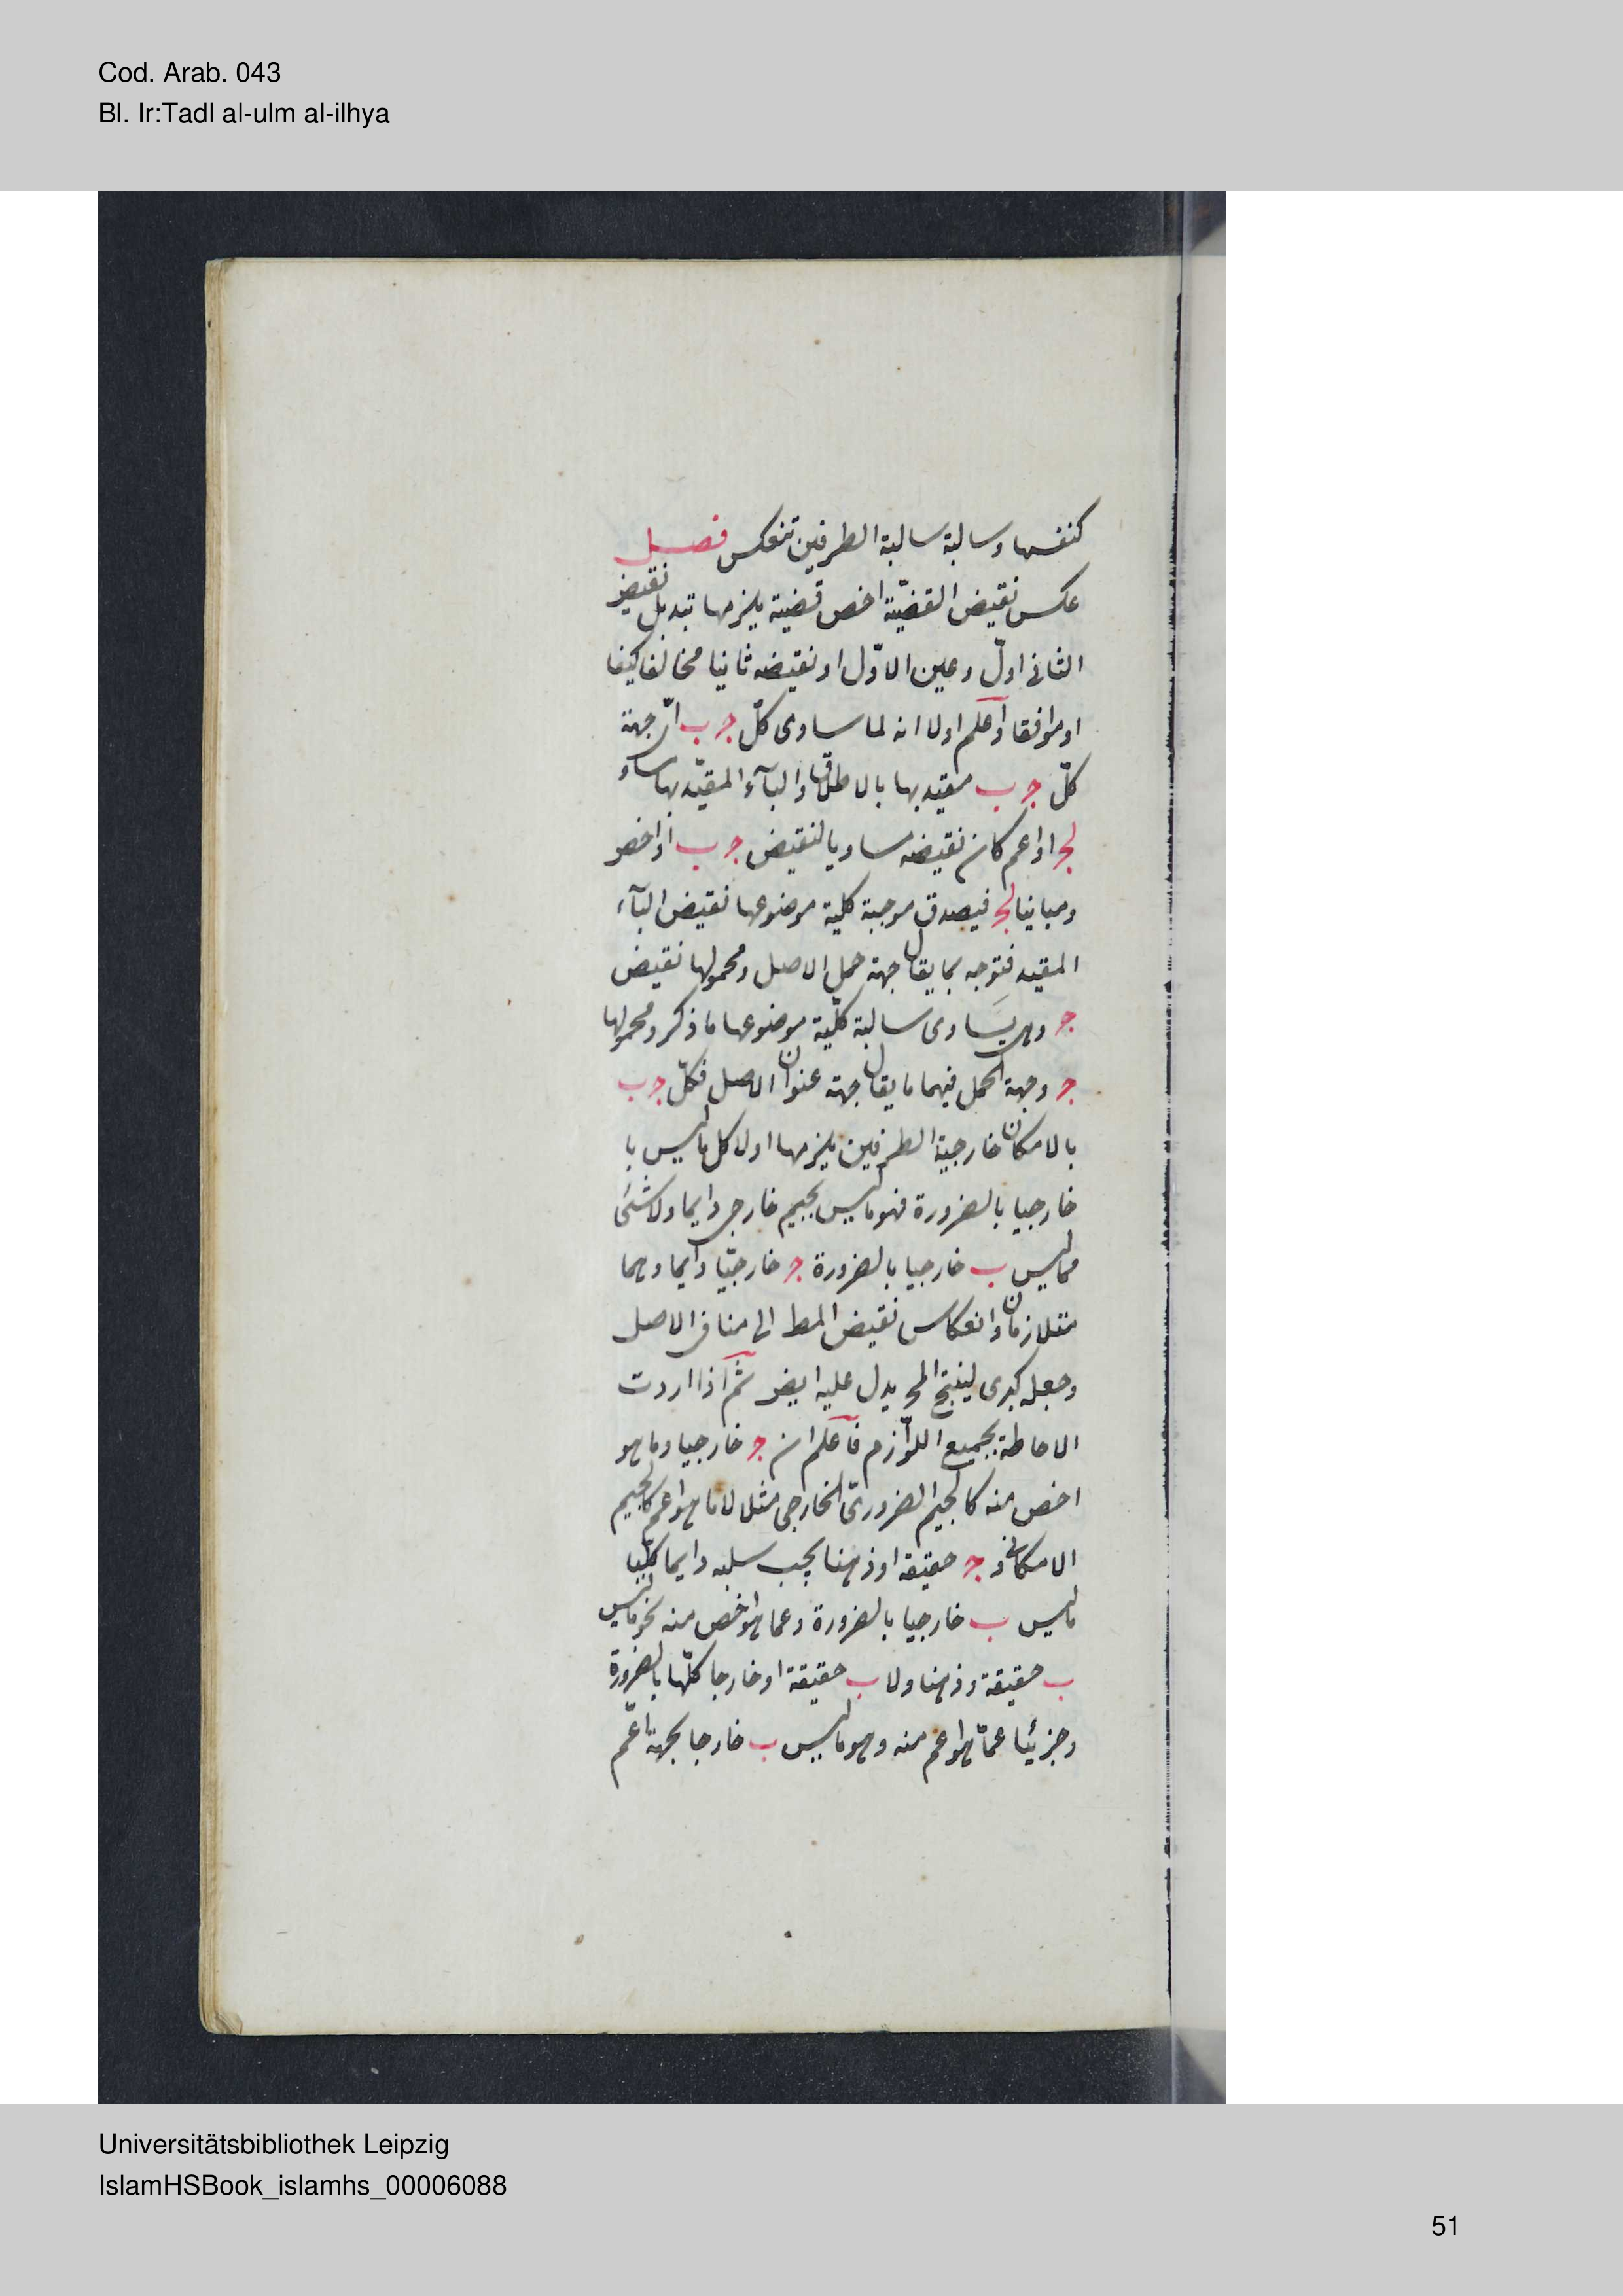 Cod. Arab. 043
Bl. Ir:Tadl al-ulm al-ilhya
كنفسها وسالبة سالبة الطرفين تنعكس فصل
عكس نقيض القضيّة اخص قضية يلزمها تبديل نقيض
الثاني اولّ وعين الاوّل او نقيضه ثانيا مخالفا كيفا
او موافقا واعلم اولا انه لما ساوى كلّ ج ب اىّ جهة
كلّ ج ب مقيد بها بالاطلاق والبآء المقيّد بها ساو
لج او اعم كان نقيضه مساويا لنقيض ج ب او اخص
ومباينا لج فيصدق موجبة كلية موضوعها نقيض البآء
المقيد فتوجه بما يقابل جهة حمل الاصل ومحمولها نقيض
ج وهى يساوى سالبة كلّية موضوعها ما ذكر ومحمولها
ج وجهة الحمل فيهما ما يقابل جهة عنوان الاصل فكلّ ج ب
بالامكان خارجية الطرفين يلزمها اولا كل ما ليس با
خارجيا بالضرورة فهو ما ليس بجيم خارجى دايما ولا شئ
مما ليس ب خارجيا بالضرورة ج خارجيّا دايما وهما
متلازمان وانعكاس نقيض المط الى منافى الاصل
وجعله كبرى لينتج المح يدل عليه ايض ثم اذا اردت
الاحاطة بجميع اللوّازم فاعلم ان ج خارجيا وما هو
اخص منه كالجيم الضرورىّ الخارجى مثلا لا ما هو اعم كالجيم
الامكانى و ج حقيقة او ذهنا يجب سلبه دايما كلّيا
ما ليس ب خارجيا بالضرورة وعما هو اخص منه نحو ما ليس
ب حقيقة وذهنا ولا ب حقيقة او خارجا كلّها بالضرورة
وجزئيا عمّا هو اعم منه وهو ما ليس ب خارجا بجهة اعّم
Universitätsbibliothek Leipzig
IslamHSBook_islamhs_00006088
51